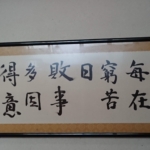 每在
窮苦
日
敗事
多因
得意